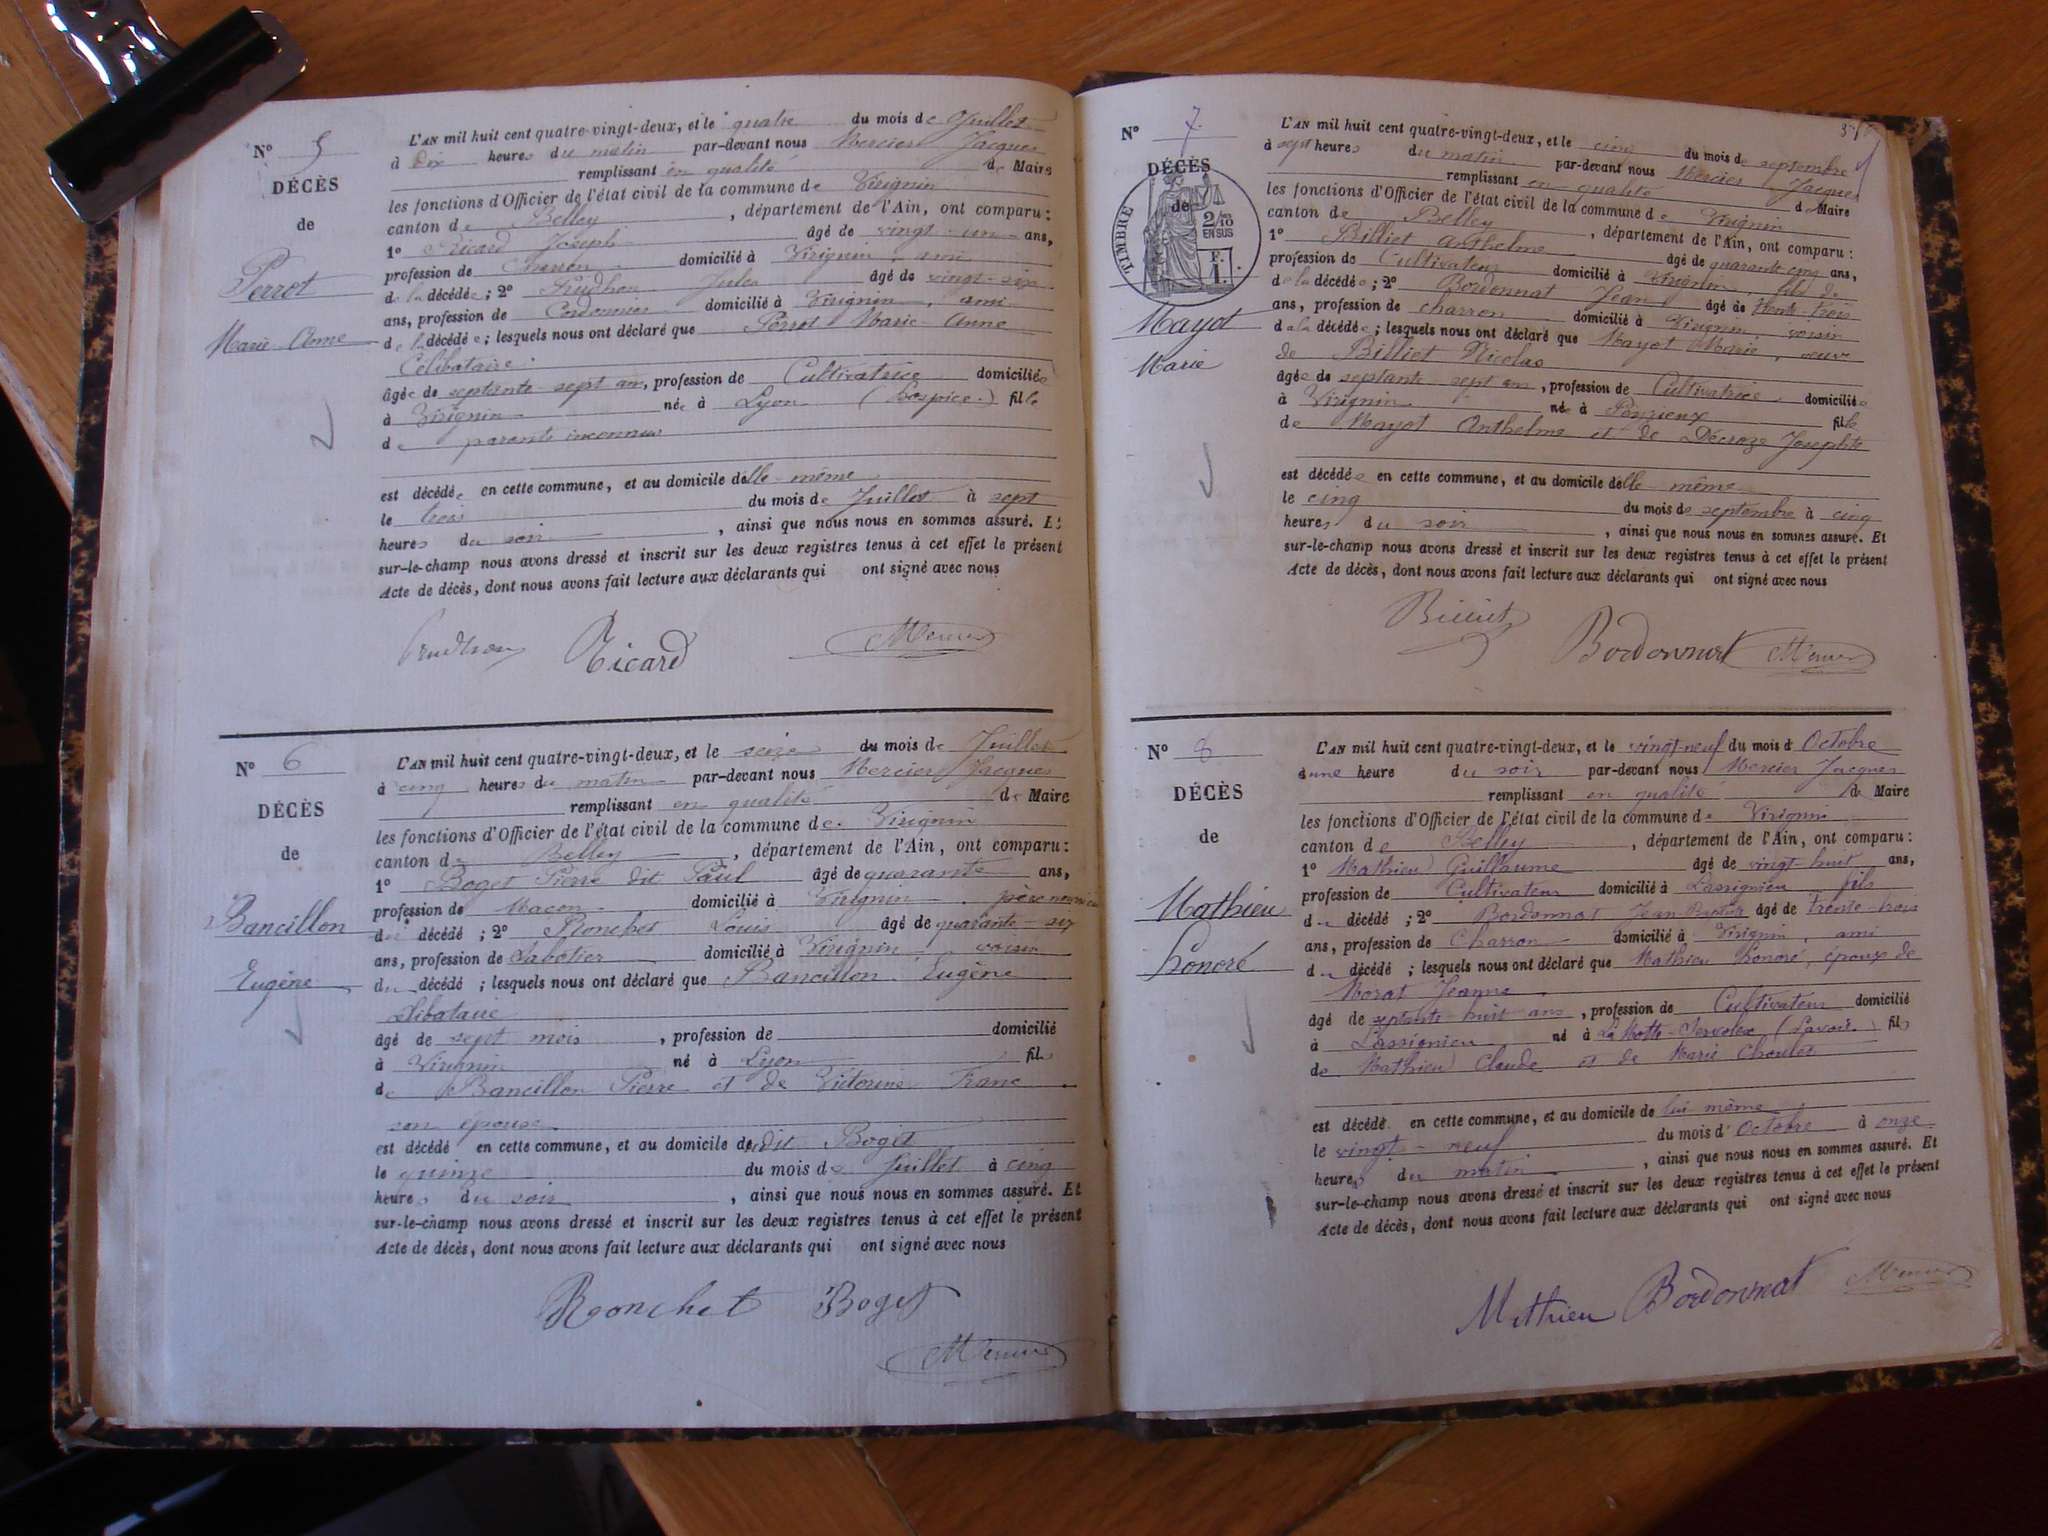 N° 5
DÉCÈS
de
Perrot
Marie Anne
L'AN mil huit cent quatre-vingt-deux, et le quatre du mois de Juillet
à dix heures du matin par-devant nous Mercier Jacques
remplissant en qualité de Maire
les fonctions d'Officier de l'état civil de la commune de Virignin
canton de Belley, département de l'Ain, ont comparu :
1° Ricard Joseph âgé de vingt-un ans,
profession de Charron domicilié à Virignin, ami
de la décédée ; 2° Prudhon Jules âgé de vingt-six
ans, profession de Cordonnier domicilié à Virignin, ami
de la décédée ; lesquels nous ont déclaré que Perrot Marie Anne
Célibataire
âgée de septante-sept ans, profession de Cultivatrice domiciliée
à Virignin née à Lyon (hospice) fille
de parents inconnus
est décédée en cette commune, et au domicile delle même
le trois du mois de Juillet à sept
heures du soir, ainsi que nous nous en sommes assuré. Et
sur-le-champ nous avons dressé et inscrit sur les deux registres tenus à cet effet le présent
Acte de décès, dont nous avons fait lecture aux déclarants qui ont signé avec nous
Prudhon Ricard Mercier
N° 6
DÉCÈS
de
Bancillon
Eugène
L'AN mil huit cent quatre-vingt-deux, et le seize du mois de Juillet
à cinq heures du matin par-devant nous Mercier Jacques
remplissant en qualité de Maire
les fonctions d'Officier de l'état civil de la commune de Virignin
canton de Belley, département de l'Ain, ont comparu :
1° Boget Pierre dit Paul âgé de quarante ans,
profession de Maçon domicilié à Virignin, père nourricier
du décédé ; 2° Ronchet Louis âgé de quarante-six
ans, profession de Sabotier domicilié à Virignin, voisin
du décédé ; lesquels nous ont déclaré que Bancillon Eugène
Célibataire
âgé de sept mois, profession de domicilié
à Virignin né à Lyon fils
de Bancillon Pierre et de Victorine Franc
son épouse
est décédé en cette commune, et au domicile dudit Boget
le quinze du mois de Juillet à cinq
heures du soir, ainsi que nous nous en sommes assuré. Et
sur-le-champ nous avons dressé et inscrit sur les deux registres tenus à cet effet le présent
Acte de décès, dont nous avons fait lecture aux déclarants qui ont signé avec nous
Ronchet Boget
Mercier
N° 7
DÉCÈS
de
TIMBRE
2/10
EN SUS
F.
1.
Mayot
Marie
L'AN mil huit cent quatre-vingt-deux, et le cinq du mois de septembre
à sept heures du matin par-devant nous Mercier Jacques
remplissant en qualité d Maire
les fonctions d'Officier de l'état civil de la commune de Virignin
canton de Belley, département de l'Ain, ont comparu :
1° Billiet Anthelme âgé de quarante-cinq ans,
profession de Cultivateur domicilié à Virignin, fils de
de la décédée ; 2° Bordonnat Jean âgé de trente-trois
ans, profession de charron domicilié à Virignin voisin
de la décédée ; lesquels nous ont déclaré que Mayot Marie, veuve
de Billiet Nicolas
âgée de septante-sept ans, profession de Cultivatrice domiciliée
à Virignin née à Peyrieux fille
de Mayot Anthelme et de Décroze Josephte
est décédée en cette commune, et au domicile delle même
le cinq du mois de septembre à cinq
heures du soir, ainsi que nous nous en sommes assuré. Et
sur-le-champ nous avons dressé et inscrit sur les deux registres tenus à cet effet le présent
Acte de décès, dont nous avons fait lecture aux déclarants qui ont signé avec nous
Billiet Bordonnat Mercier
N° 8
DÉCÈS
de
Mathieu
honoré
L'AN mil huit cent quatre-vingt-deux, et le vingt-neuf du mois d'Octobre
à une heure du soir par-devant nous Mercier Jacques
remplissant en qualité de Maire
les fonctions d'Officier de l'état civil de la commune de Virignin
canton de Belley, département de l'Ain, ont comparu :
1° Mathieu Guillaume âgé de vingt-huit ans,
profession de Cultivateur domicilié à Lassignieu, fils
du décédé ; 2° Bordonnat Jean Baptiste âgé de trente-trois
ans, profession de Charron domicilié à Virignin, ami
du décédé ; lesquels nous ont déclaré que Mathieu honoré, époux de
Morat Jeanne
âgé de septante-huit ans, profession de Cultivateur domicilié
à Lassignieu né à La Motte-Servolex (Savoie) fils
de Mathieu Claude et de Marie Choulet
est décédé en cette commune, et au domicile de lui même
le vingt-neuf du mois d'Octobre à onze
heures du matin, ainsi que nous nous en sommes assuré. Et
sur-le-champ nous avons dressé et inscrit sur les deux registres tenus à cet effet le présent
Acte de décès, dont nous avons fait lecture aux déclarants qui ont signé avec nous
Mathieu Bordonnat Mercier